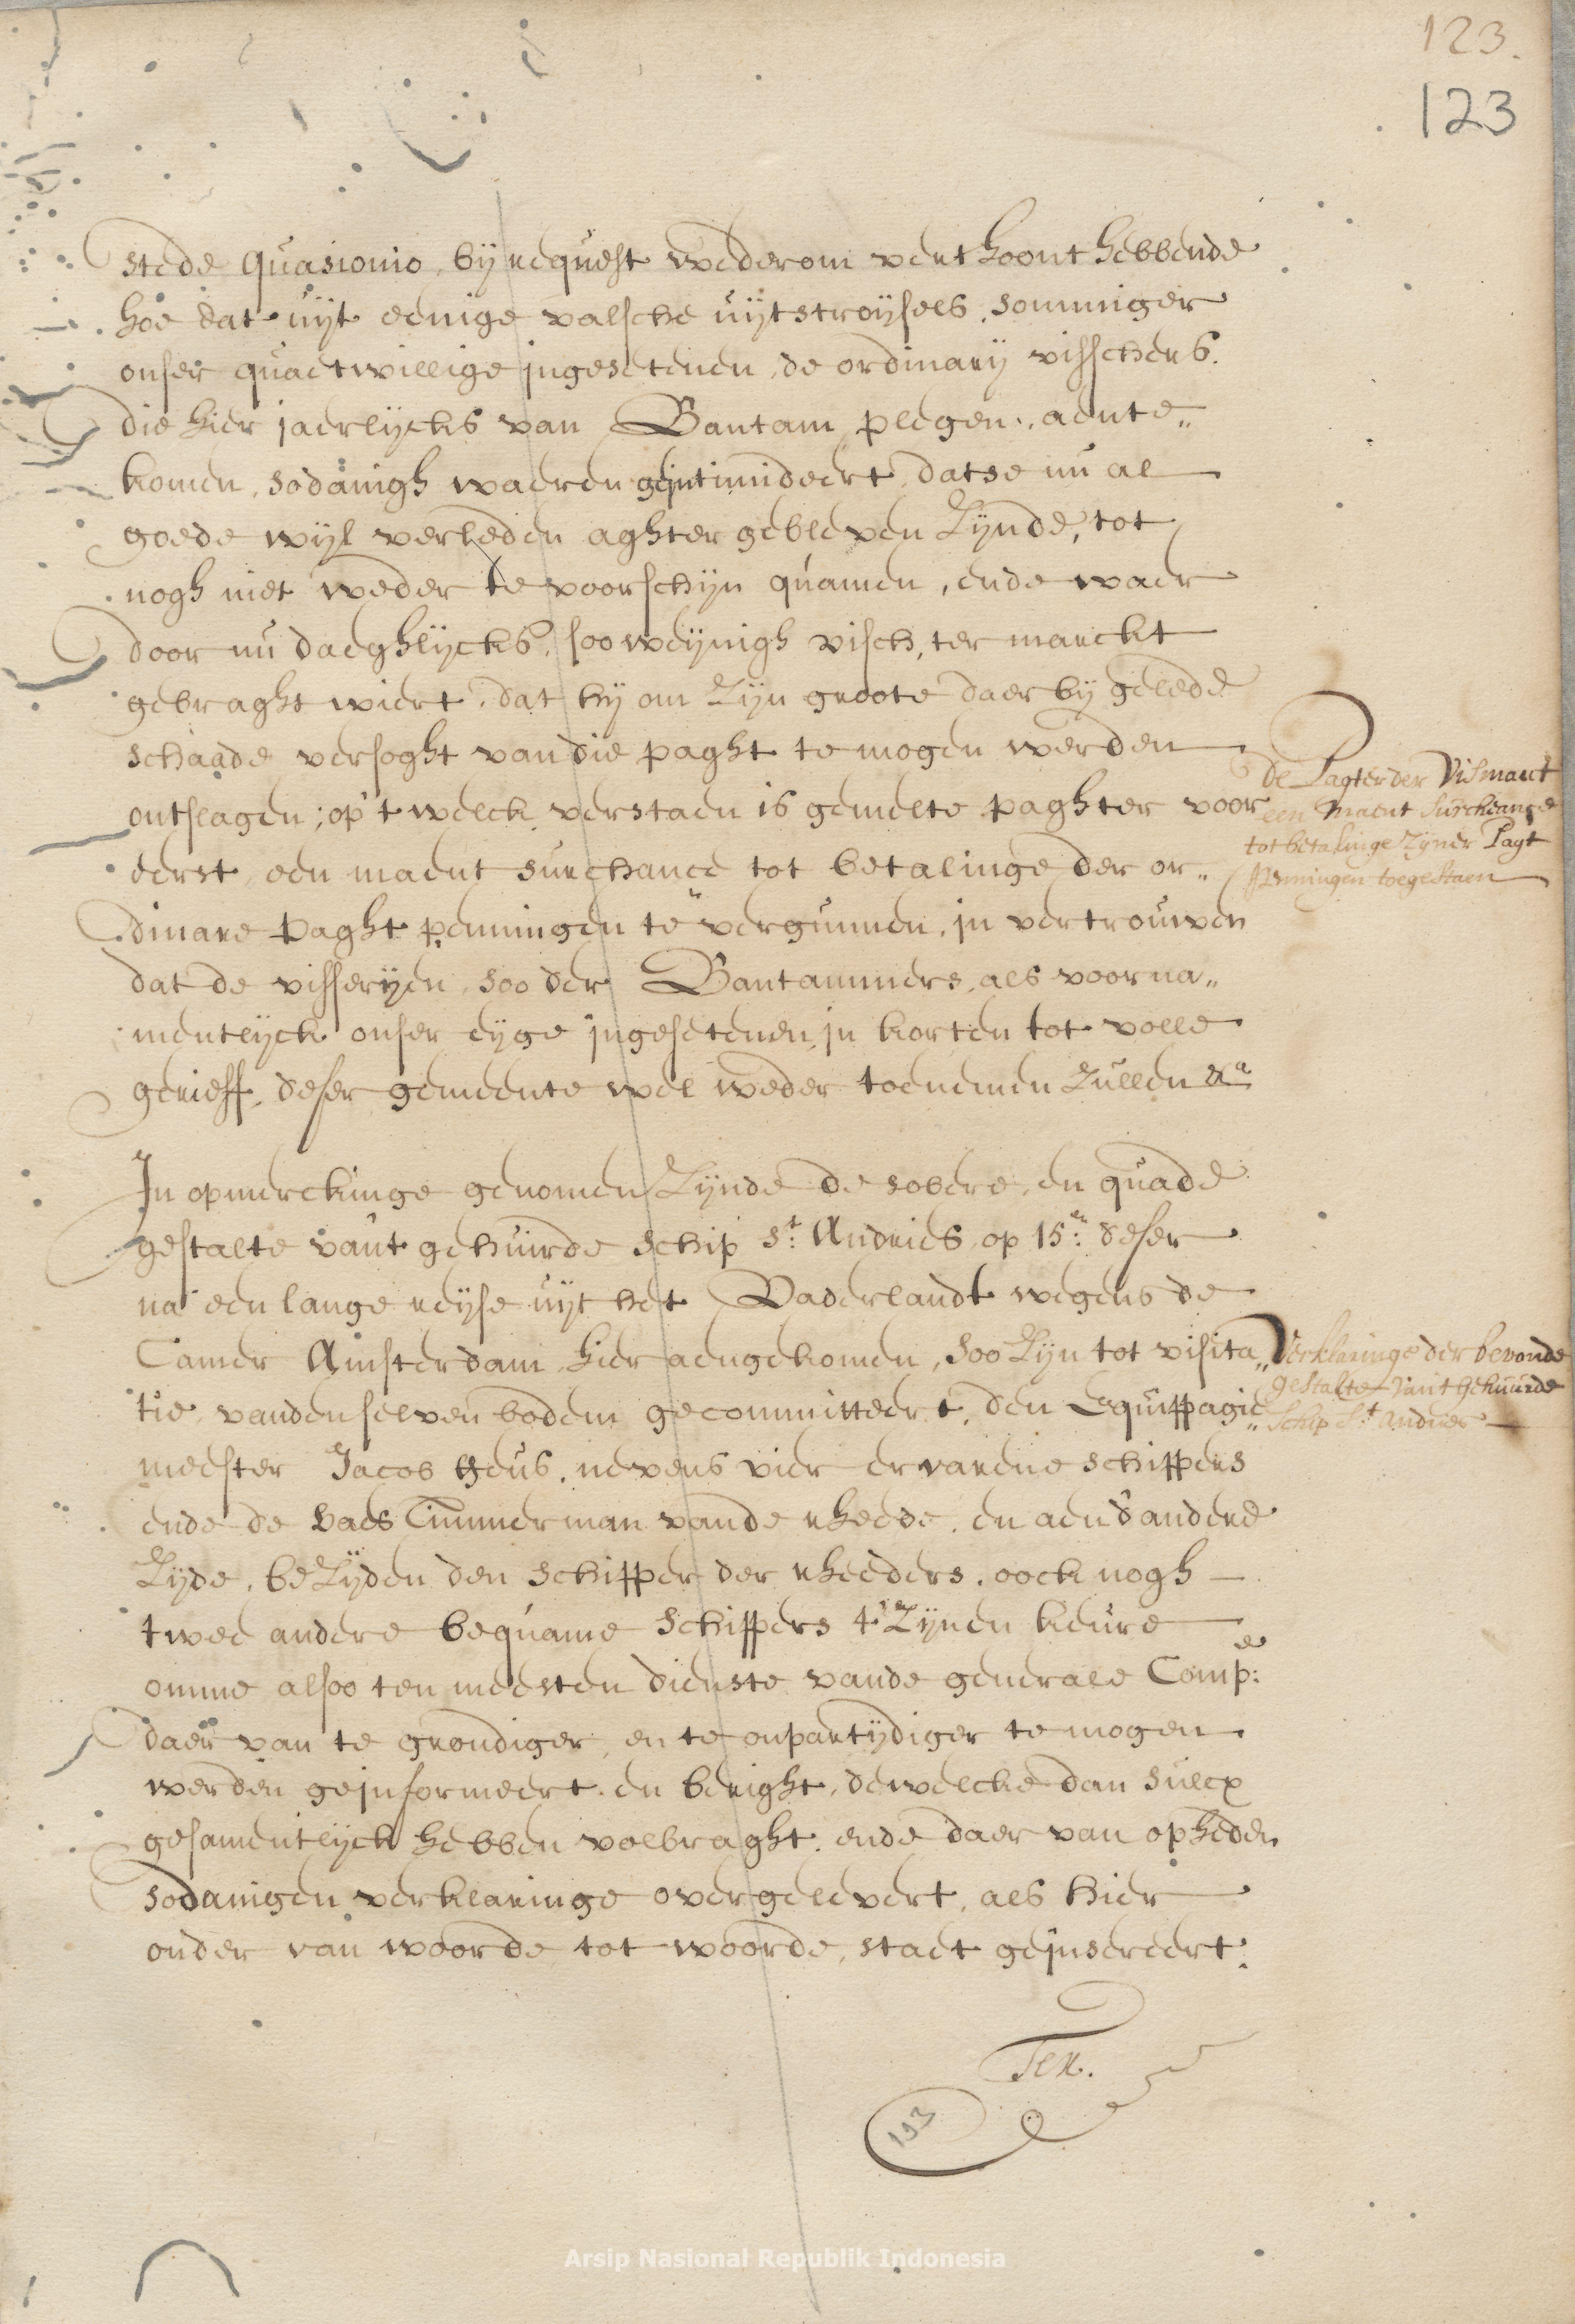 123.
123
stede Quasionio, bij request wederom verthoont hebbende
hoe dat uijt eenige valsche uijtstroijsels, sommiger
onser quaetwillige jngesetenen, de ordinarij visschers.
die hier jaerlijcks van Bantam plegen, aente„
komen, sodanigh waeren gejntimideert, datse nu al
goede wijl verleden aghter gebleven Zijnde, tot
nogh niet weder te voorschijn quamen, ende waer
door nu daeghlijcks, soo weijnigh visch, ter marckt
gebraght wiert, dat hij om Zijn groote daer bij gelede
schaade versoght van die paght te mogen werden
ontslagen; op 't welck verstaen is gemelte paghter voor
eerst, een maent surchance tot betalinge der or„
dinare paght penningen te vergunnen, jn vertrouwen
dat de visserijen, soo der Bantammers, als voorna„
mentlijck onser eijge jngesetenen, jn korten tot volle
gerieff, deser gemeente wel weder toenemen Zullen &a
de Pagter der Vismarct
een maent surcheance
tot betalinge Zijner Pagt
penningen toegestaen
In opmerckinge genomen Zijnde de sobere, en quade
gestalte vant gehuirde schip St: Andries op 15en: deser
na een lange reijse uijt het Vaderlandt wegens de
Camer Amsterdam, hier aengekomen, soo Zijn tot visita„
tie, vanden selven bodem gecommitteert, den Equippagie„
meester Jacob Heus, nevens vier ervarene schippers
ende de baes Timmerman vande rheede, en aen d'andere
Zijde, beZijden den schipper der rheeders, oock nogh
twee andere bequame schippers t' Zijnen keure
omme alsoo ten meesten dienste vande generale Compe:
daer van te grondiger, en te onpartijdiger te mogen
werden gejnformeert, en beright, dewelcke dan sulcx
gesamentlijck hebben volbraght, ende daer van opheden
sodanigen verklaringe overgelevert, als hier
onder van woorde tot woorde, staet gejnsereert:
Verklaringe der bevonde
gestalte van't gehuurde
schip St Andries
Ter.
193
Arsip Nasional Republik Indonesia